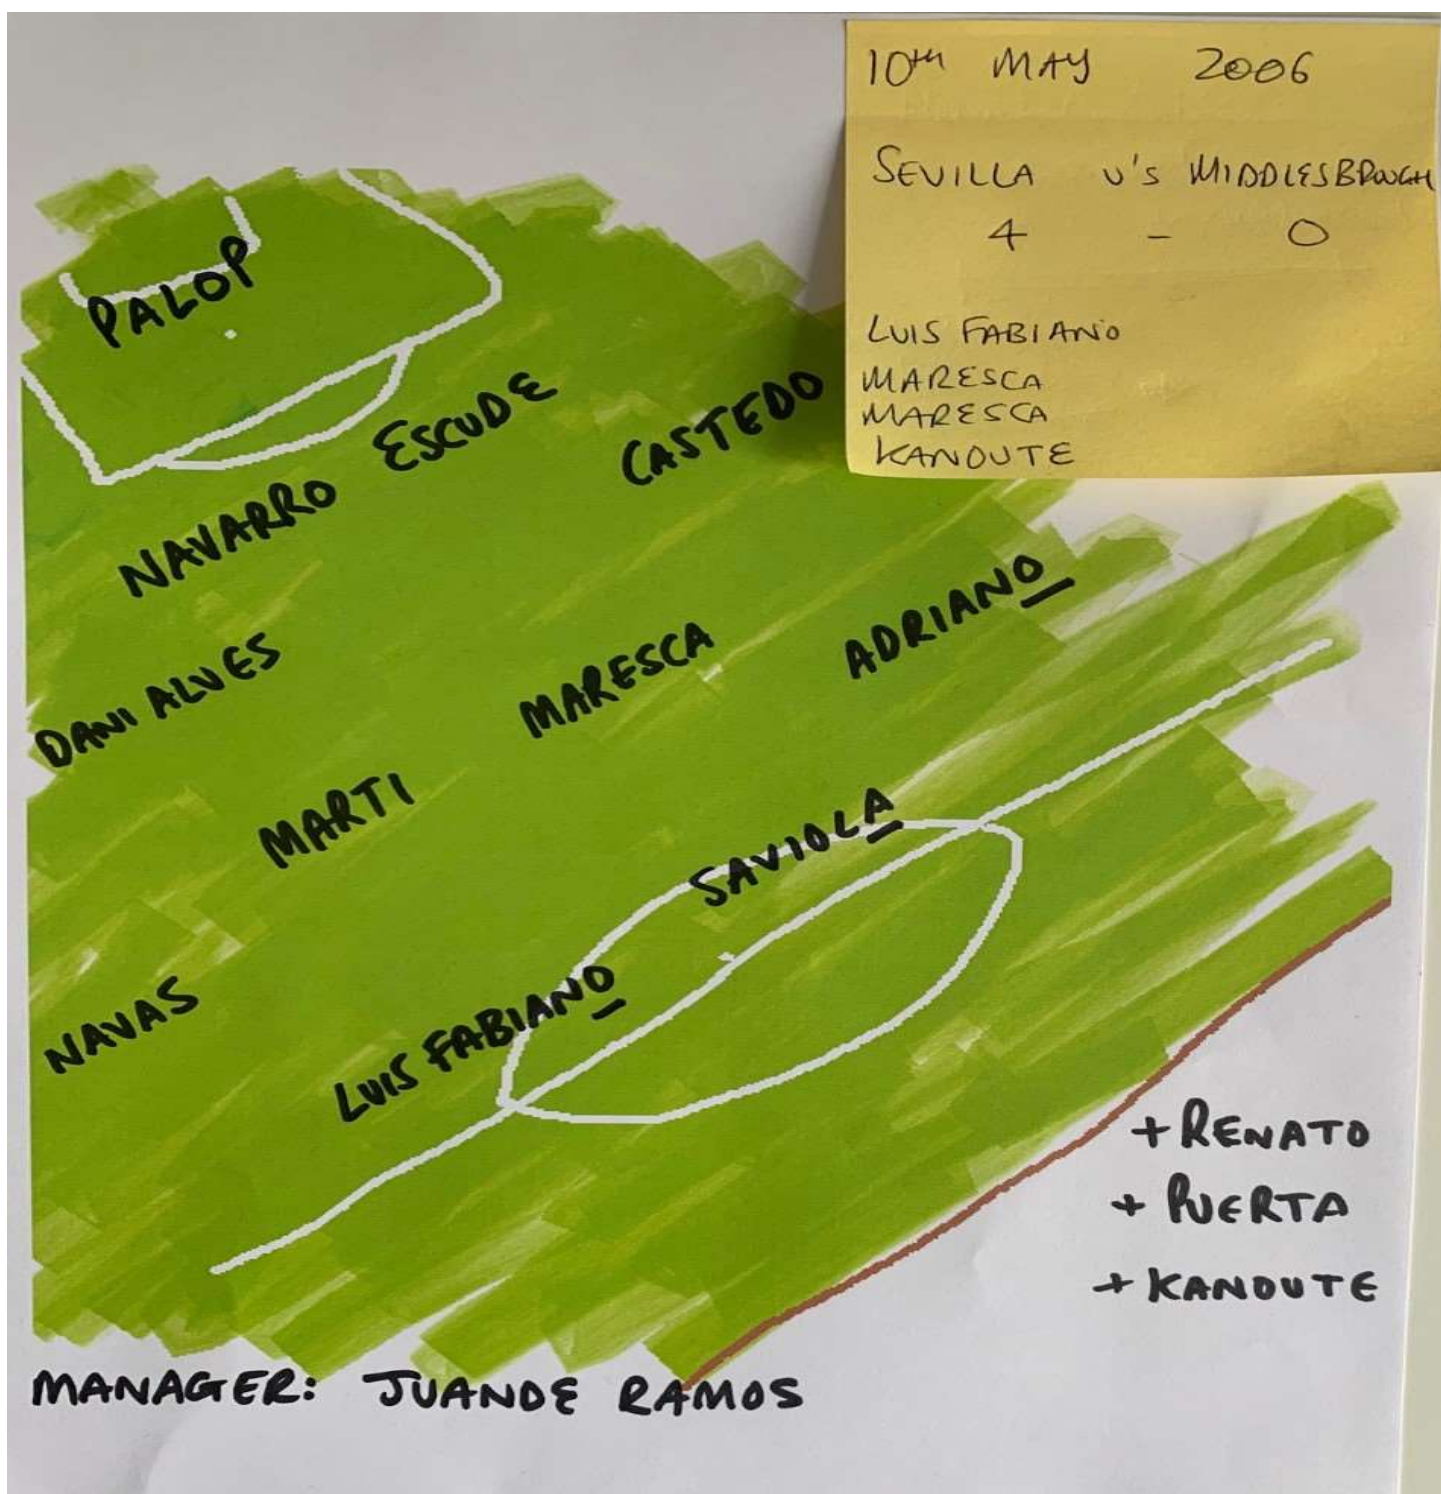 10TH MAY 2006
SEVILLA V'S MIDDLESBROUGH
4 - 0
LUIS FABIANO
MARESCA
MARESCA
KANOUTE
PALOP
ESCUDE
CASTEDO
NAVARRO
ADRIANO
MARESCA
DANI ALVES
MARTI
SAVIOLA
NAVAS
LUIS FABIANO
+ RENATO
+ PUERTA
+ KANOUTE
MANAGER: JUANDE RAMOS